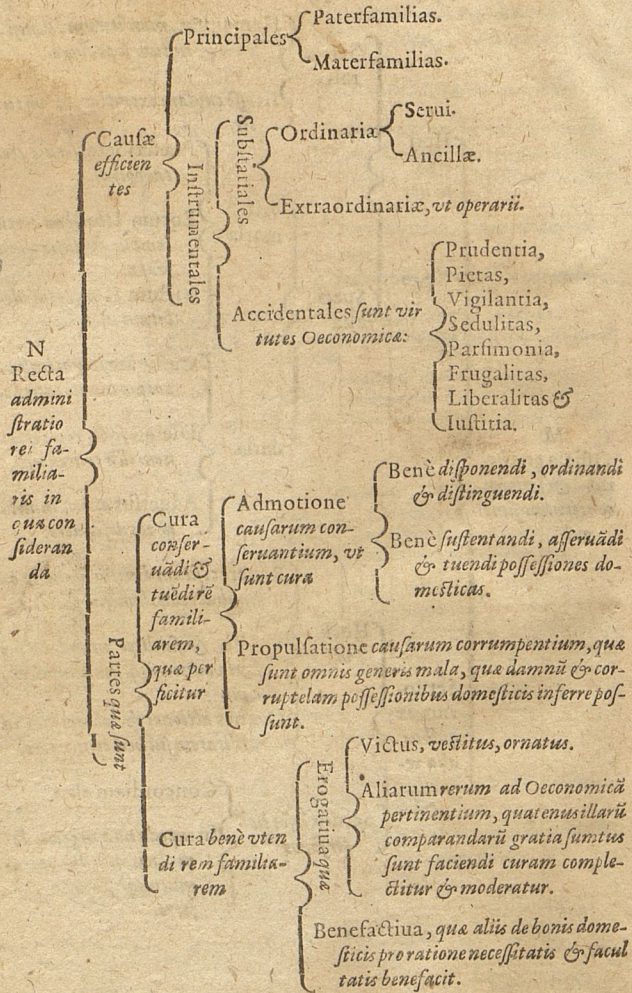 N
Recta
admini
ſtratio
rei fa-
milia-
ris in
qua con
ſideran
da
Cauſæ
efficien
tes
Principales
Paterfamilias.
Materfamilias.
Inſtrumentales
Subſtātiales
Ordinariæ
Serui.
Ancillæ.
Extraordinariæ, vt operarii.
Accidentales ſunt vir
tutes Oeconomicæ:
Prudentia,
Pietas,
Vigilantia,
Sedulitas,
Parſimonia,
Frugalitas,
Liberalitas &
Iuſtitia.
Partes quæ ſunt
Cura
conſer-
uādi &
tuēdi rē
famili-
arem,
quæ per
ficitur
Admotione
cauſarum con-
ſeruantium, vt
ſunt cura
Benè diſponendi, ordinandi
& diſtinguendi.
Benè ſuſtentandi, aſſeruādi
& tuendi poſſeſſiones do-
meſticas.
Propulſatione cauſarum corrumpentium, quæ
ſunt omnis generis mala, quæ damnū & cor-
ruptelam poſſeſſionibus domeſticis inferre poſ-
ſunt.
Cura benè vten
di rem familia-
rem
Erogatiua quæ
Victus, veſtitus, ornatus.
Aliarum rerum ad Oeconomicā
pertinentium, quatenus illarū
comparandarū gratia ſumtus
ſunt faciendi curam comple-
ctitur & moderatur.
Benefactiua, quæ aliis de bonis dome-
ſticis pro ratione neceſſitatis & facul
tatis benefacit.